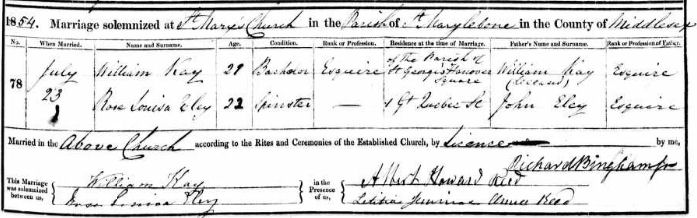 1854. Marriage solemnized at St. Mary's Church in the Parish of St. Marylebone in the County of Middlesex
No. When Married. Name and Surname. Age. Condition. Rank or Profession. Residence at the time of Marriage. Father's Name and Surname. Rank or Profession of Father.
78 July 23 William Kay 29 Bachelor Esquire of the Parish of St Georges Hanover Square William Kay (deceased) Esquire
Rose Louisa Eley 22 Spinster — Gt Quebec St John Eley Esquire
Married in the Above Church according to the Rites and Ceremonies of the Established Church, by Licence by me,
Richard Bingham Jr
This Marriage was solemnized between us, William Kay Rose Louisa Eley in the Presence of us, Albert Howard Reed Letitia Jemima Reed